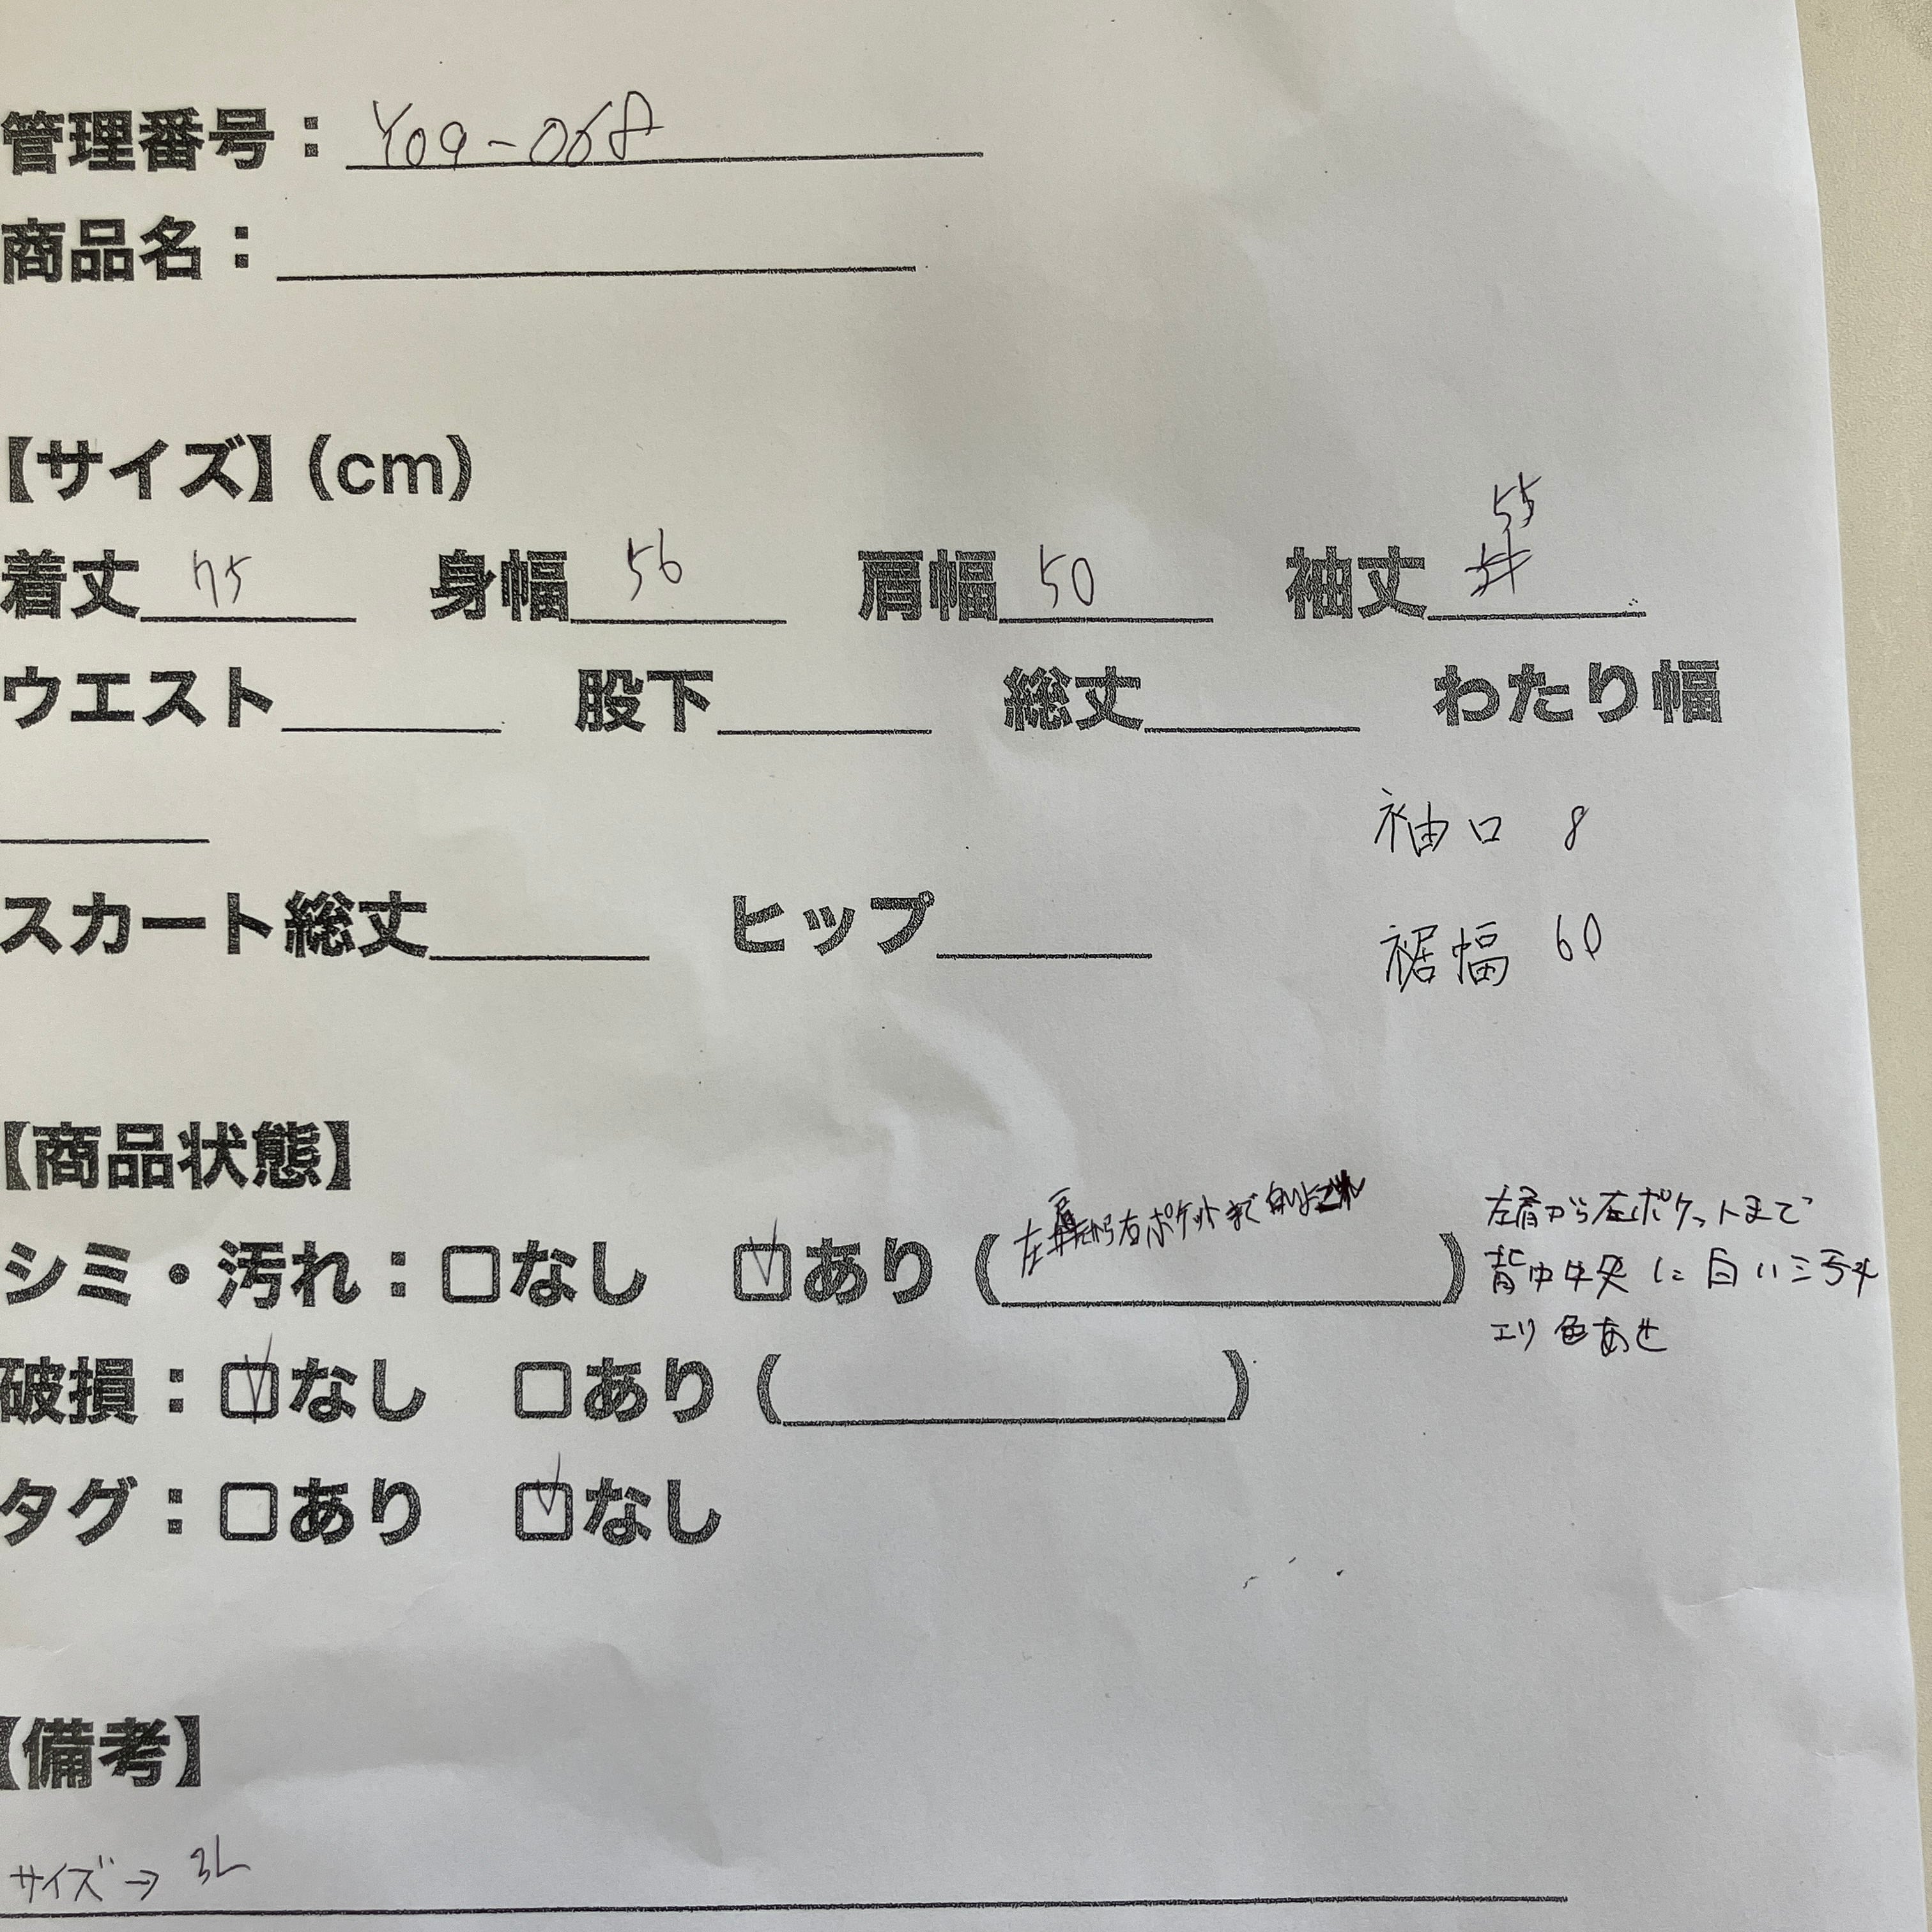 管理番号：Y09-068
商品名：
【サイズ】(cm)
着丈 75 身幅 56 肩幅 50 袖丈 55
ウエスト 股下 総丈 わたり幅
袖口 8
スカート総丈 ヒップ
裾幅 60
【商品状態】
シミ・汚れ：□なし ☑あり（左肩から右ポケットまで白い）
左肩から左ポケットまで
背中中央に白い汚れ
エリ色あせ
破損：☑なし □あり（ ）
タグ：□あり ☑なし
【備考】
サイズ→3L